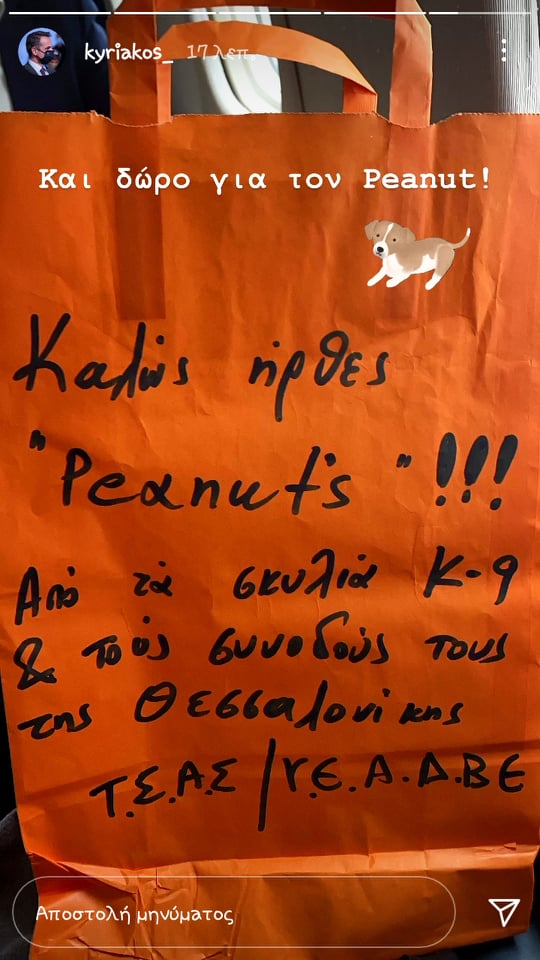 kyriakos_ 17 λεπ.
Και δώρο για τον Peanut!
Καλώς ήρθες
"Peanut's" !!!
Από τά σκυλιά Κ-9
& τούς συνοδούς τους
της Θεσσαλονίκης
Τ.Σ.Α.Σ/Υ.Ε.Α.Δ.ΒΕ
Αποστολή μηνύματος